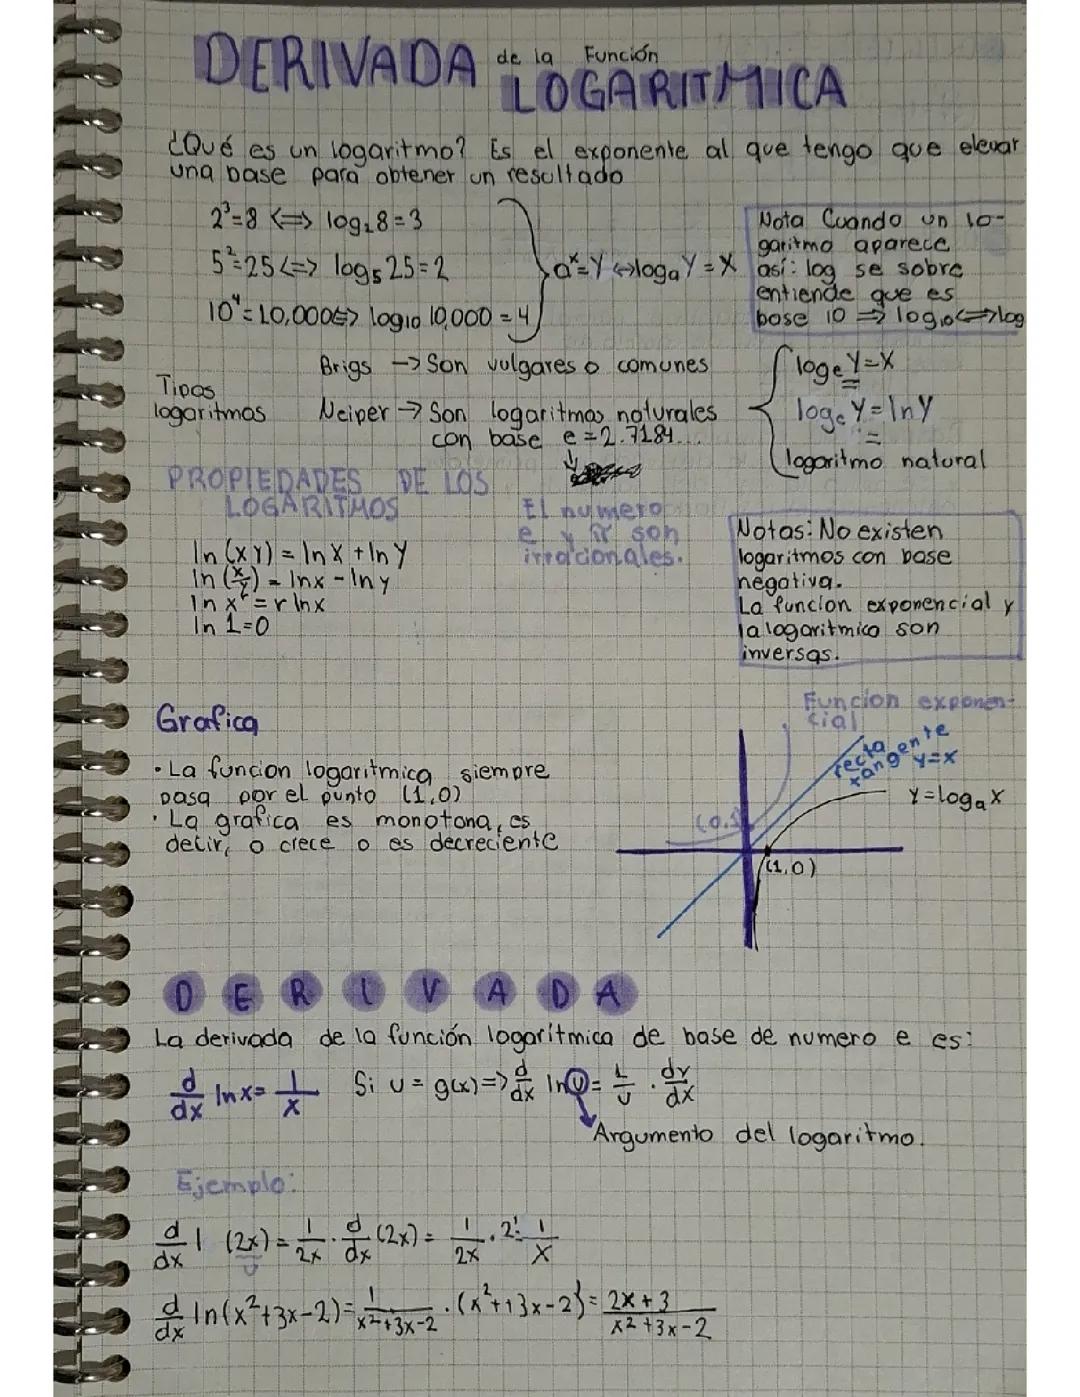 DERIVADA de la Función
LOGARITMICA
¿Qué es un logaritmo? Es el exponente al que tengo que elevar
una base para obtener un resultado
2³=8 <=> log₂8=3
5²=25<=> log₅25=2
10⁴=10,000<=> log₁₀ 10,000 = 4
aˣ=Y <->logₐY=X
Nota Cuando un lo-
garitmo aparece
así: log se sobre
entiende que es
base 10 => log₁₀<=>log
Tipos
logaritmos
Brigs -> Son vulgares o comunes
Neiper -> Son logaritmos naturales
con base e=2.7184...
logₑY=X
logₑY=lnY
logaritmo natural
PROPIEDADES DE LOS
LOGARITMOS
El numero
e y π son
irracionales.
ln(xY)=lnX+lnY
ln(x/y)=lnx-lny
ln xʳ=r lnx
ln 1=0
Notas: No existen
logaritmos con base
negativa.
La funcion exponencial y
la logaritmica son
inversas.
Grafica
• La funcion logaritmica siempre
pasa por el punto (1,0)
• La grafica es monotona, es
decir, o crece o es decreciente
Funcion exponen-
cial
recta
tangente
y=x
Y=logₐX
(0,1)
(1,0)
DERIVADA
La derivada de la función logarítmica de base de numero e es:
d/dx lnx= 1/x Si u = g(x)=> d/dx ln u = 1/u · dv/dx
Argumento del logaritmo.
Ejemplo:
d/dx l (2x) = 1/2x · d/dx (2x) = 1/2x · 2 = 1/x
u
d/dx ln(x²+3x-2)= 1/x²+3x-2 · (x²+13x-2) = 2x+3/x²+3x-2